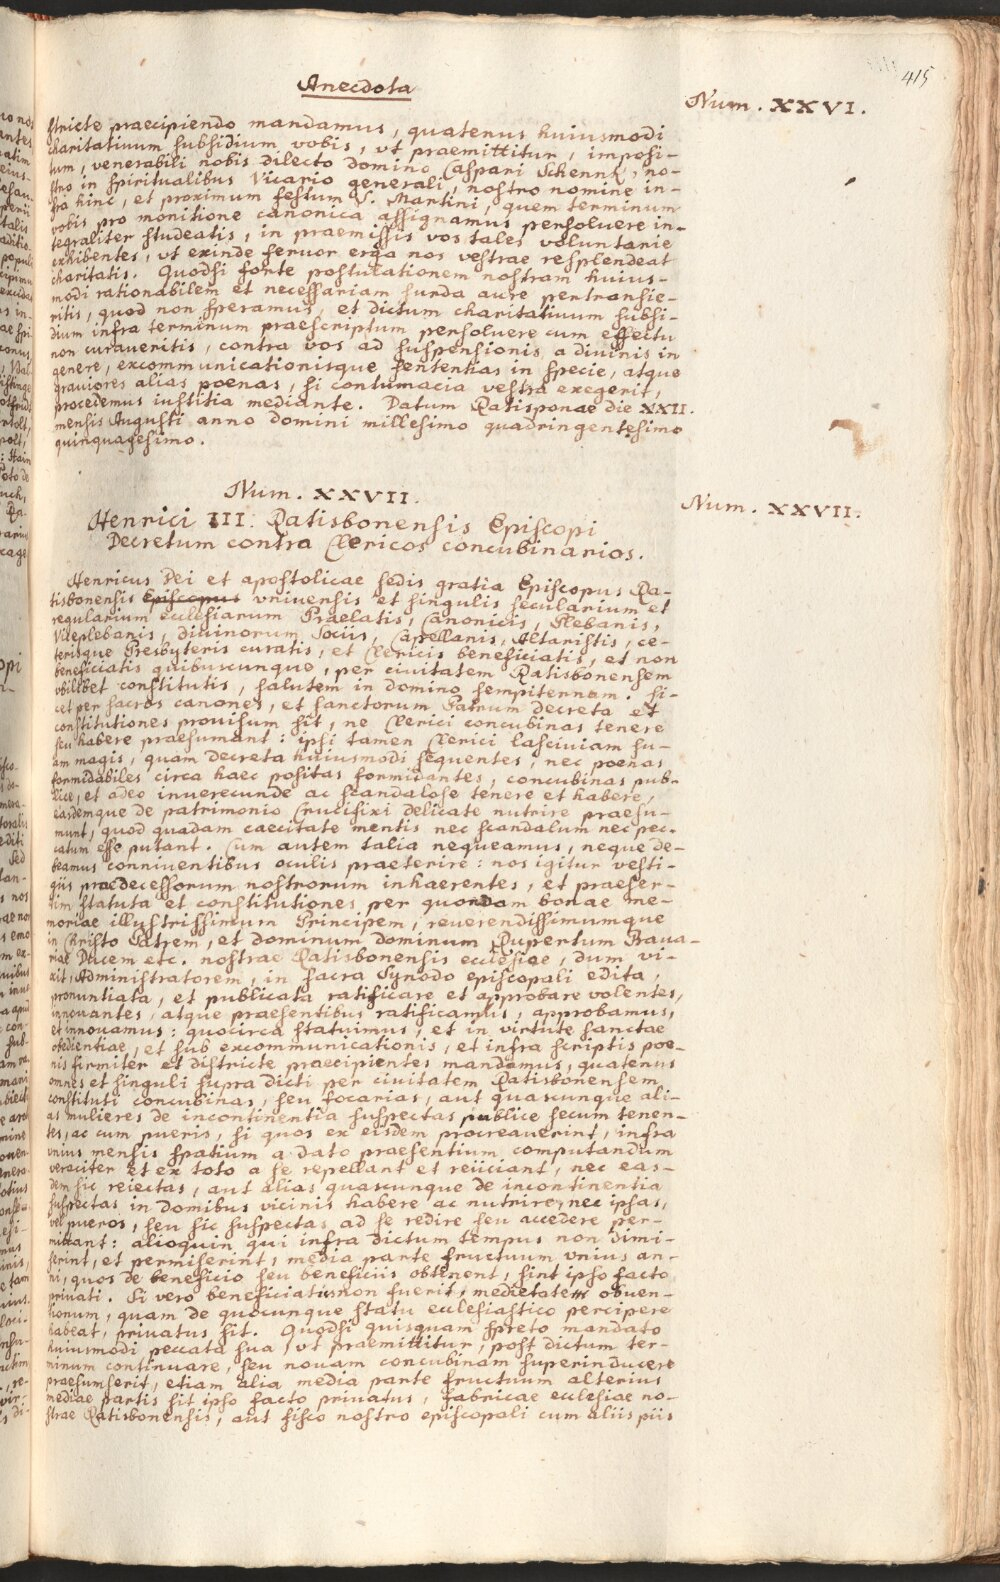 415
Anecdota
Num. XXVI.
stricte praecipiendo mandamus, quatenus huiusmodi
charitatiuum subsidium vobis, vt praemittitur, imposi-
tum, venerabili nobis dilecto domino Caspari Schenk, no-
stro in spiritualibus Vicario generali, nostro nomine in-
fra hinc, et proximum festum S. Martini, quem terminum
vobis pro monitione canonica assignamus persoluere in-
tegraliter studeatis, in praemissis vos tales voluntarie
exhibentes, vt exinde feruor erga nos vestrae resplendeat
charitatis. Quodsi forte postulationem nostram huius-
modi rationabilem et necessariam surda aure pertransie-
ritis, quod non speramus, et dictum charitatiuum subsi-
dium infra terminum praescriptum persoluere cum effectu
non curaueritis, contra vos ad suspensionis a diuinis in
genere, excommunicationisque sententias in specie, atque
grauiores alias poenas, si contumacia vestra exegerit,
procedemus iustitia mediante. Datum Ratisponae die XXII.
mensis Augusti anno domini millesimo quadringentesimo
quinquagesimo.
Num. XXVII.
Num. XXVII.
Henrici III. Ratisbonensis Episcopi
Decretum contra Clericos concubinarios.
Henricus Dei et apostolicae sedis gratia Episcopus Ra-
tisbonensis Episcopus vniuersis et singulis secularium et
regularium ecclesiarum Praelatis, Canonicis, Plebanis,
Viceplebanis, diuinorum Sociis, Capellanis, Altaristis, ce-
terisque Presbyteris curatis, et Clericis beneficiatis, et non
beneficiatis quibuscunque, per ciuitatem Ratisbonensem
vbilibet constitutis, salutem in domino sempiternam. Li-
cet per sacros canones, et sanctorum Patrum decreta et
constitutiones prouisum sit, ne Clerici concubinas tenere
seu habere praesumant: ipsi tamen Clerici lasciuiam su-
am magis, quam decreta huiusmodi sequentes, nec poenas
formidabiles circa haec positas formidantes, concubinas pub-
lice, et adeo inuerecunde ac scandalose tenere et habere,
easdemque de patrimonio Crucifixi delicate nutrire praesu-
munt, quod quadam caecitate mentis nec scandalum nec pec-
catum esse putant. Cum autem talia nequeamus, neque de-
beamus conniuentibus oculis praeterire: nos igitur vesti-
giis praedecessorum nostrorum inhaerentes, et praeser-
tim statuta et constitutiones per quondam bonae me-
moriae illustrissimum Principem, reuerendissimumque
in Christo Patrem, et dominum dominum Rupertum Baua-
riae Ducem etc. nostrae Ratisbonensis ecclesiae, dum vi-
xit, Administratorem, in sacra Synodo episcopali edita,
pronuntiata, et publicata ratificare et approbare volentes,
innouantes, atque praesentibus ratificamus, approbamus,
et innouamus: quocirca statuimus, et in virtute sanctae
obedientiae, et sub excommunicationis, et infra scriptis poe-
nis firmiter et districte praecipientes mandamus, quatenus
omnes et singuli supra dicti per ciuitatem Ratisbonensem
constituti concubinas, seu focarias, aut quascunque ali-
as mulieres de incontinentia suspectas publice secum tenen-
tes, ac cum pueris, si quos ex eisdem procreauerint, infra
vnius mensis spatium a dato praesentium computandum
veraciter et ex toto a se repellant et reiiciant, nec eas-
dem sic reiectas, aut alias quascunque de incontinentia
suspectas in domibus vicinis habere ac nutrire, nec ipsas,
vel pueros, seu sic suspectas ad se redire seu accedere per-
mittant: alioquin qui infra dictum tempus non dimi-
serint, et permiserint, media parte fructuum vnius an-
ni, quos de beneficio seu beneficiis obtinent, sint ipso facto
priuati. Si vero beneficiatus non fuerit, medietatem obuen-
tionum, quam de quocunque statu ecclesiastico percipere
habeat, priuatus sit. Quodsi quisquam spreto mandato
huiusmodi peccata sua, vt praemittitur, post dictum ter-
minum continuare, seu nouam concubinam superinducere
praesumserit, etiam alia media parte fructuum alterius
mediae partis sit ipso facto priuatus, fabricae ecclesiae no-
strae Ratisbonensis, aut fisco nostro episcopali cum aliis piis